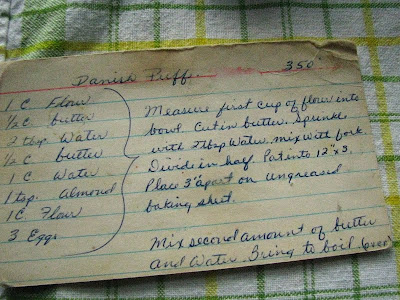 Danish Puff 350°
1 C Flour
½ C butter
2 tbsp Water
½ C butter
1 C Water
1 tsp. Almond
1 C Flour
3 Eggs
Measure first cup of flour into
bowl. Cut in butter. Sprinkle
with 2 tbsp Water. Mix with fork.
Divide in half. Pat into 12" x 3.
Place 3" apart on ungreased
baking sheet.
Mix second amount of butter
and Water. Bring to boil (over)